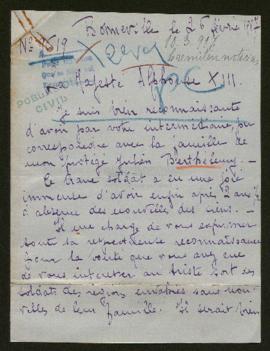 Bonneville le 26 février 1917
Nº
Sa Majesté Alphonse XIII.
Je suis bien reconnaissante
d'avoir par votre intermédiaire, pu
correspondre avec la famille de
mon protégé Julien Berthélemy. –
Ce brave soldat a eu une joie
immense d'avoir enfin après 2 ans ½
d'absence des nouvelles des siens. –
Il me charge de vous exprimer
toute sa respectueuse reconnaissance
pour la bonté que vous avez eue
de vous intéresser au triste sort des
soldats des régions envahies sans nou-
velles de leur famille. Il serait bien